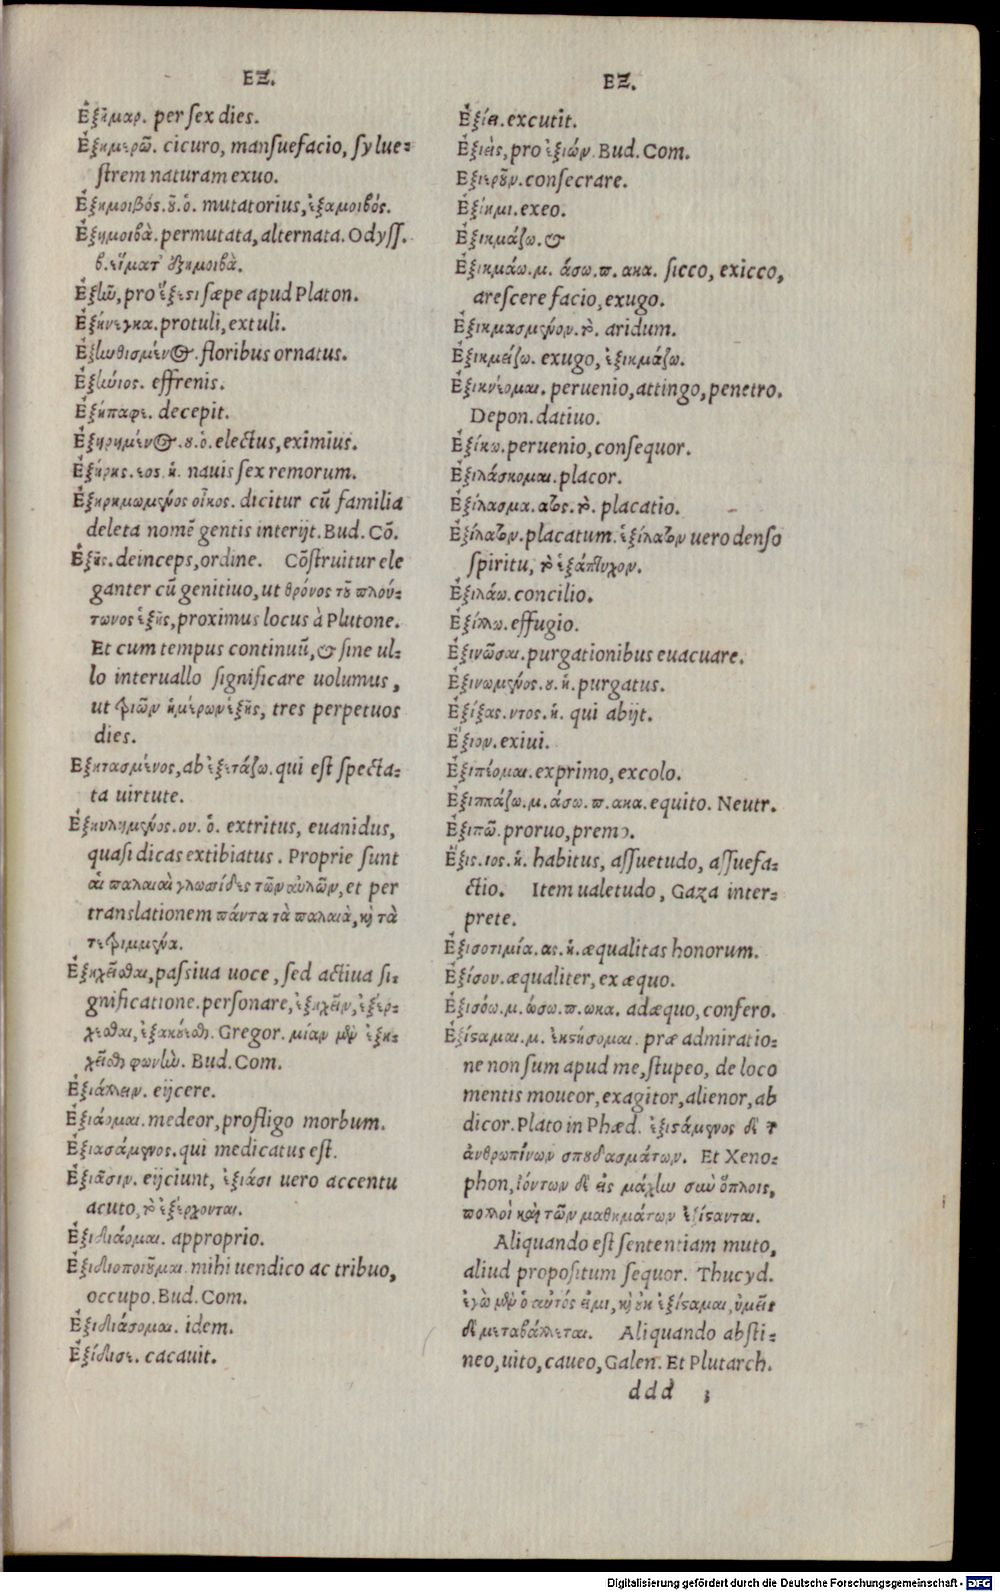 ΕΞ.
Ἐξῆμαρ. per sex dies.
Ἐξημερῶ. cicuro, mansuefacio, sylue-
strem naturam exuo.
Ἐξημοιβός. ȣ͂. ὁ. mutatorius, ἐξαμοιβός.
Ἐξημοιβὰ. permutata, alternata. Odyss.
β. εἵματ' ἐξημοιβὰ.
Ἐξῆν, pro ἔξεσι sæpe apud Platon.
Ἐξήνεγκα. protuli, extuli.
Ἐξηνθισμένος. floribus ornatus.
Ἐξήνιος. effrenis.
Ἐξήπαφε. decepit.
Ἐξηρημένος. ȣ. ὁ. electus, eximius.
Ἐξήρης. εος. ἡ. nauis sex remorum.
Ἐξηρημωμένος οἶκος. dicitur cũ familia
deleta nomẽ gentis interijt. Bud. Cõ.
Ἑξῆς. deinceps, ordine. Cõstruitur ele
ganter cũ genitiuo, ut θρόνος τȣ͂ πλού-
τωνος ἑξῆς, proximus locus à Plutone.
Et cum tempus continuũ, & sine ul-
lo interuallo significare uolumus,
ut τριῶν ἡμέρων ἑξῆς, tres perpetuos
dies.
Ἐξητασμένος, ab ἐξετάζω. qui est specta-
ta uirtute.
Ἐξηυλημένος. ου. ὁ. extritus, euanidus,
quasi dicas extibiatus. Proprie sunt
αἱ παλαιαὶ γλωσσίδες τῶν αὐλῶν, et per
translationem πάντα τὰ παλαιὰ, καὶ τὰ
τετριμμένα.
Ἐξηχεῖσθαι, passiua uoce, sed actiua si-
gnificatione. personare, ἐξηχεῖν, ἐξέρ-
χεσθαι, ἐξακούεσθαι. Gregor. μίαν μὲν ἐξη-
χεῖσθαι φωνὴν. Bud. Com.
Ἐξιάλλειν. eijcere.
Ἐξιάομαι. medeor, profligo morbum.
Ἐξιασάμενος. qui medicatus est.
Ἐξιᾶσιν. eijciunt, ἐξιάσι uero accentu
acuto, τὸ ἐξέρχονται.
Ἐξιδιάομαι. approprio.
Ἐξιδιοποιȣ͂μαι. mihi uendico ac tribuo,
occupo. Bud. Com.
Ἐξιδιάσομαι. idem.
Ἐξίδισε. cacauit.
ΕΞ.
Ἐξίει. excutit.
Ἐξιεὶς, pro ἐξιών. Bud. Com.
Ἐξιερȣ͂ν. consecrare.
Ἐξίημι. exeo.
Ἐξικμάζω. &
Ἐξικμάω. μ. άσω. π. ακα. sicco, exicco,
arescere facio, exugo.
Ἐξικμασμένον. τὸ. aridum.
Ἐξικμείζω. exugo, ἐξικμάζω.
Ἐξικνέομαι. peruenio, attingo, penetro.
Depon. datiuo.
Ἐξίκω. peruenio, consequor.
Ἐξιλάσκομαι. placor.
Ἐξίλασμα. ατος. τὸ. placatio.
Ἐξίλατον. placatum. ἑξίλατον uero denso
spiritu, τὸ ἑξάπτυχον.
Ἐξιλάω. concilio.
Ἐξίλλω. effugio.
Ἐξινῶσαι. purgationibus euacuare.
Ἐξινωμένος. ȣ. ἡ. purgatus.
Ἐξίξας. ντος. ἡ. qui abijt.
Ἔξιον. exiui.
Ἐξιπέομαι. exprimo, excolo.
Ἐξιππάζω. μ. άσω. π. ακα. equito. Neutr.
Ἐξιπῶ. proruo, premo.
Ἕξις. ιος. ἡ. habitus, assuetudo, assuefa-
ctio. Item ualetudo, Gaza inter-
prete.
Ἐξισοτιμία. ας. ἡ. æqualitas honorum.
Ἐξίσου. æqualiter, ex æquo.
Ἐξισόω. μ. ώσω. π. ωκα. adæquo, confero.
Ἐξίσαμαι. μ. ἐκσήσομαι. præ admiratio-
ne non sum apud me, stupeo, de loco
mentis moueor, exagitor, alienor, ab
dicor. Plato in Phæd. ἐξισάμενος δὲ τ̃
ἀνθρωπίνων σπȣδασμάτων. Et Xeno-
phon, ἰόντων δὲ εἰς μάχην σὺν ὅπλοις,
πολλοὶ καὶ τῶν μαθημάτων ἐξίσανται.
Aliquando est sententiam muto,
aliud propositum sequor. Thucyd.
ἐγὼ μὲν ὁ αὐτός εἰμι, καὶ ȣκ ἐξίσαμαι, ὑμεῖς
δὲ μεταβάλλεται. Aliquando absti-
neo, uito, caueo, Galen. Et Plutarch.
ddd 3
Digitalisierung gefördert durch die Deutsche Forschungsgemeinschaft - DFG